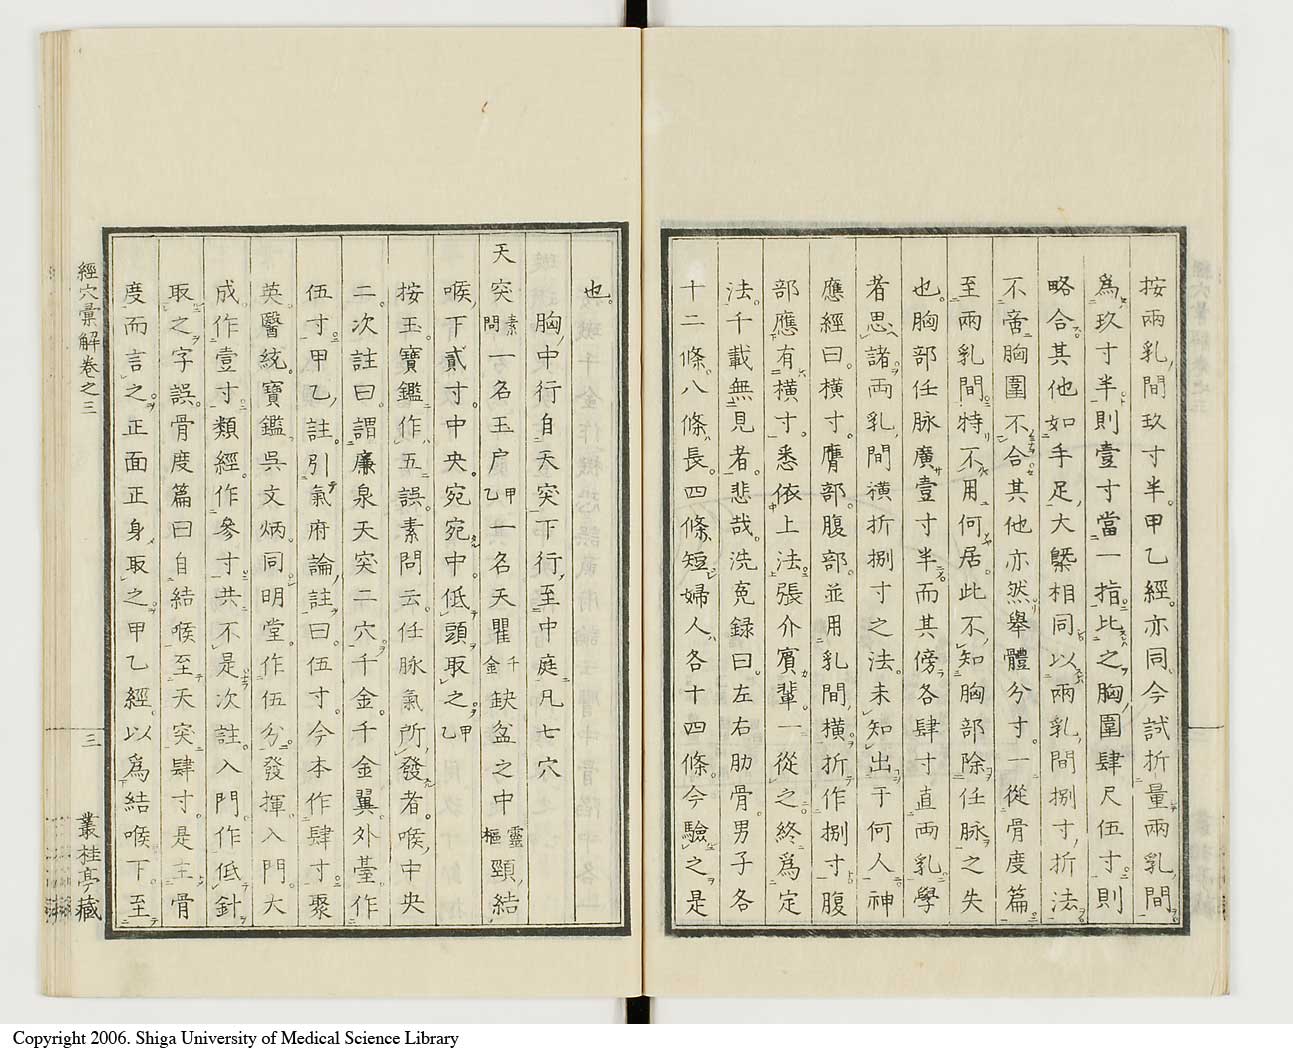 按兩乳間玖寸半。甲乙經亦同。今試折量兩乳間
為玖寸半則壹寸當一指比之胸圍肆尺伍寸則
略合其他如手足大槩相同以兩乳間捌寸折法
不啻胸圍不合其他亦然舉體分寸一從骨度篇
至兩乳間特不用何居。此不知胸部除任脉之失
也。胸部任脉廣壹寸半而其傍各肆寸直兩乳學
者思諸兩乳間橫折捌寸之法。未知出于何人。神
應經曰。橫寸。膺部。腹部並用乳間橫折作捌寸腹
部應有橫寸。悉依上法。張介賓輩一從之終為定
法。千載無見者。悲哉。洗冤録曰。左右肋骨男子各
十二條。八條長。四條短婦人各十四條。今驗之是
也。
胸中行自天突下行至中庭凡七穴
天突素問一名玉户甲乙一名天瞿千金缺盆之中靈樞頸結
喉下貳寸中央宛宛中。低頭取之。甲乙
按玉寶鑑作五誤。素問云任脉氣所發者。喉中央
二。次註曰。謂廉泉天突二穴。千金。千金翼外臺作
伍寸。甲乙註。引氣府論註曰。伍寸。今本作肆寸。聚
英。醫統。寶鑑。吳文炳。同明堂。作伍分。發揮。入門。大
成。作壹寸。類經。作參寸。共不是。次註。入門作低針
取之字誤。骨度篇曰自結喉至天突肆寸。是主骨
度而言之。正面正身取之。甲乙經。以為結喉下。至
經穴彙解卷之三
三
叢桂亭藏
Copyright 2006. Shiga University of Medical Science Library